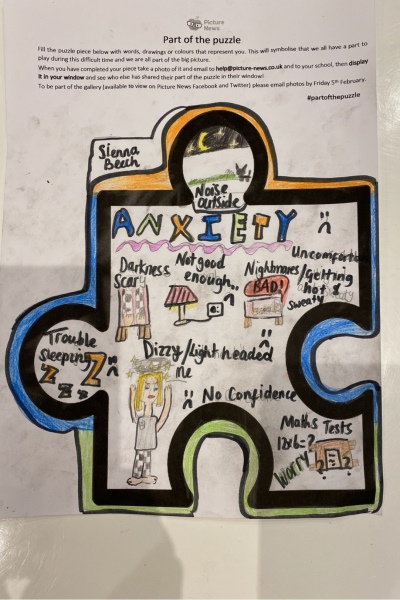 Picture
News
Part of the puzzle
Fill the puzzle piece below with words, drawings or colours that represent you. This will symbolise that we all have a part to
play during this difficult time and we are all part of the big picture.
When you have completed your piece take a photo of it and email to help@picture-news.co.uk and to your school, then display
it in your window and see who else has shared their part of the puzzle in their window!
To be part of the gallery (available to view on Picture News Facebook and Twitter) please email photos by Friday 5th February.
#partofthepuzzle
Sienna
Beech
Noise
outside
ANXIETY
Darkness
Scary
Not good
enough..
Nightmares/
BAD!
Uncomfortable
Getting
hot &
Sweaty
Trouble
Sleeping
Z Z Z
Dizzy/Light headed
me
No Confidence
Maths Tests
12x6=?
Worry